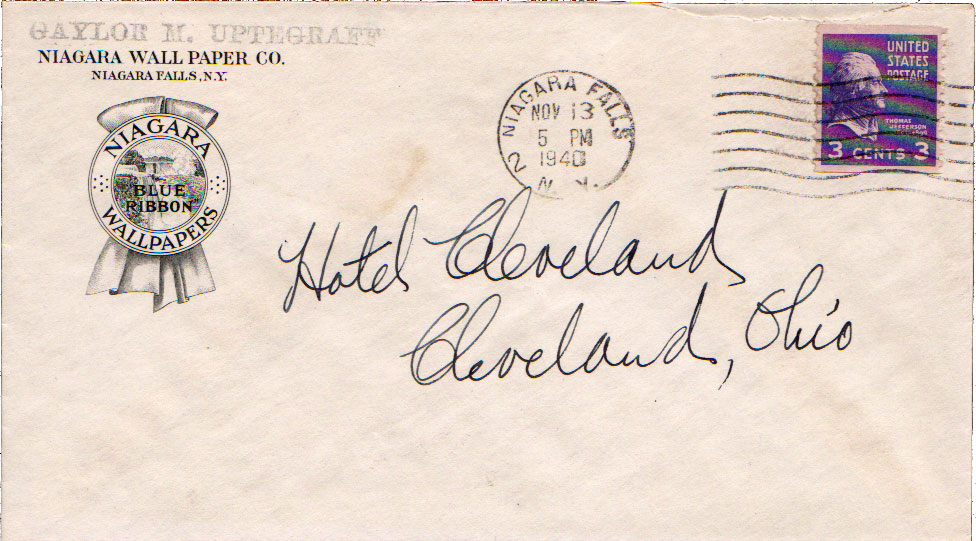 GAYLOR M. UPTEGRAFF
NIAGARA WALL PAPER CO.
NIAGARA FALLS, N.Y.
NIAGARA
BLUE
RIBBON
WALLPAPERS
NIAGARA FALLS
NOV 13
5 PM
1940
N. Y.
2
UNITED
STATES
POSTAGE
THOMAS
JEFFERSON
3 CENTS 3
Hotel Cleveland
Cleveland, Ohio